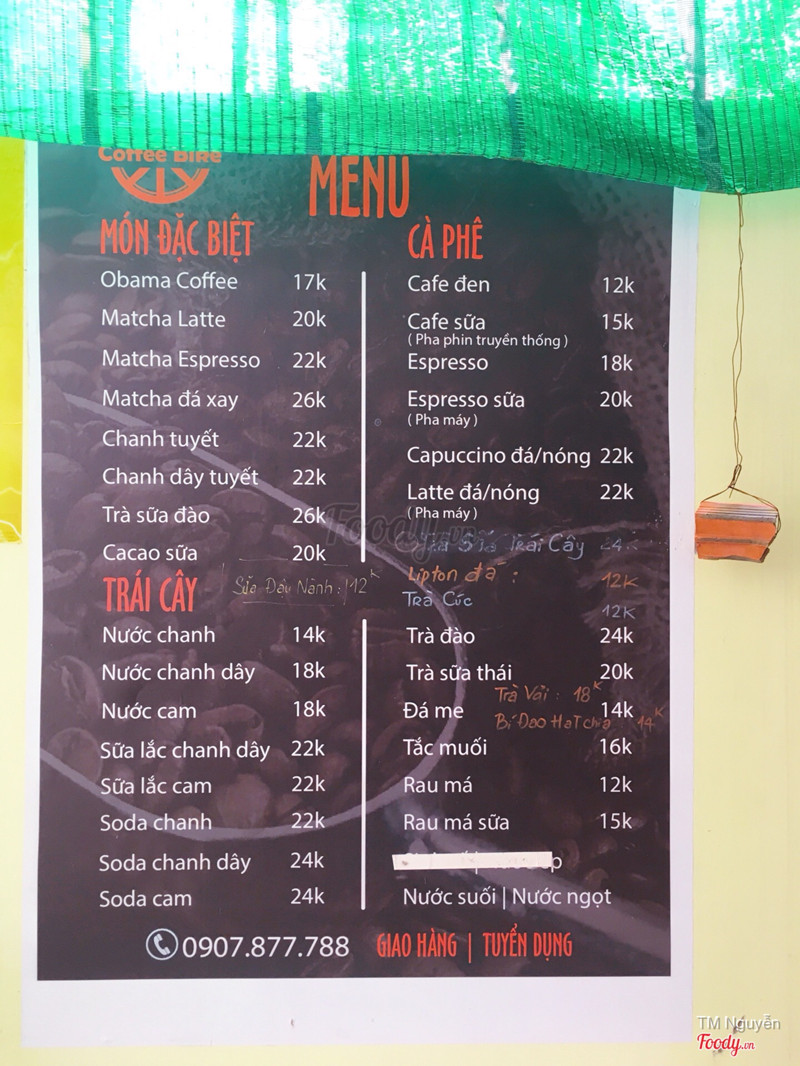 Coffee Bike
MENU
MÓN ĐẶC BIỆT
Obama Coffee 17k
Matcha Latte 20k
Matcha Espresso 22k
Matcha đá xay 26k
Chanh tuyết 22k
Chanh dây tuyết 22k
Trà sữa đào 26k
Cacao sữa 20k
Sữa Đậu Nành: 12K
TRÁI CÂY
Nước chanh 14k
Nước chanh dây 18k
Nước cam 18k
Sữa lắc chanh dây 22k
Sữa lắc cam 22k
Soda chanh 22k
Soda chanh dây 24k
Soda cam 24k
CÀ PHÊ
Cafe đen 12k
Cafe sữa 15k
( Pha phin truyền thống )
Espresso 18k
Espresso sữa 20k
( Pha máy )
Capuccino đá/nóng 22k
Latte đá/nóng 22k
( Pha máy )
Trái Cây 24K
Lipton đá : 12K
Trà Cúc 12K
Trà đào 24k
Trà sữa thái 20k
Trà Vải : 18K
Đá me 14k
Bí Đao Hạt chia 14K
Tắc muối 16k
Rau má 12k
Rau má sữa 15k
Nước suối | Nước ngọt
0907.877.788 GIAO HÀNG | TUYỂN DỤNG
Foody.vn
TM Nguyễn
Foody.vn